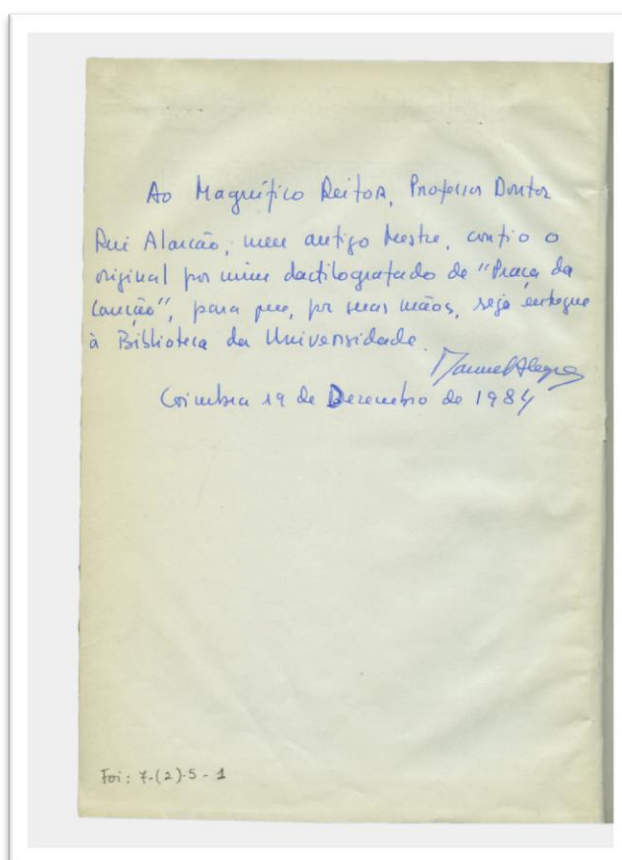 Ao Magnífico Reitor, Professor Doutor
Rui Alarcão, meu antigo Mestre, confio o
original por mim dactilografado de "Praça da
Canção", para que, por suas mãos, seja entregue
à Biblioteca da Universidade.
Manuel Alegre
Coimbra 19 de Dezembro de 1984
Foi: 7-(2)-5-1